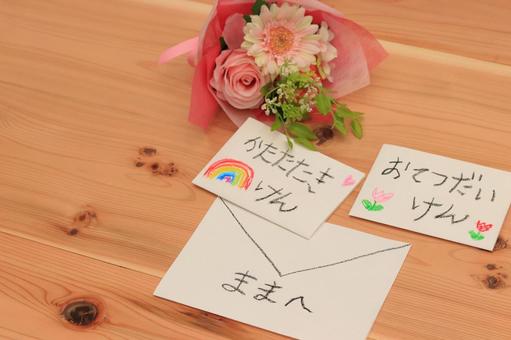 かたたたき
けん
おてつだい
けん
ままへ